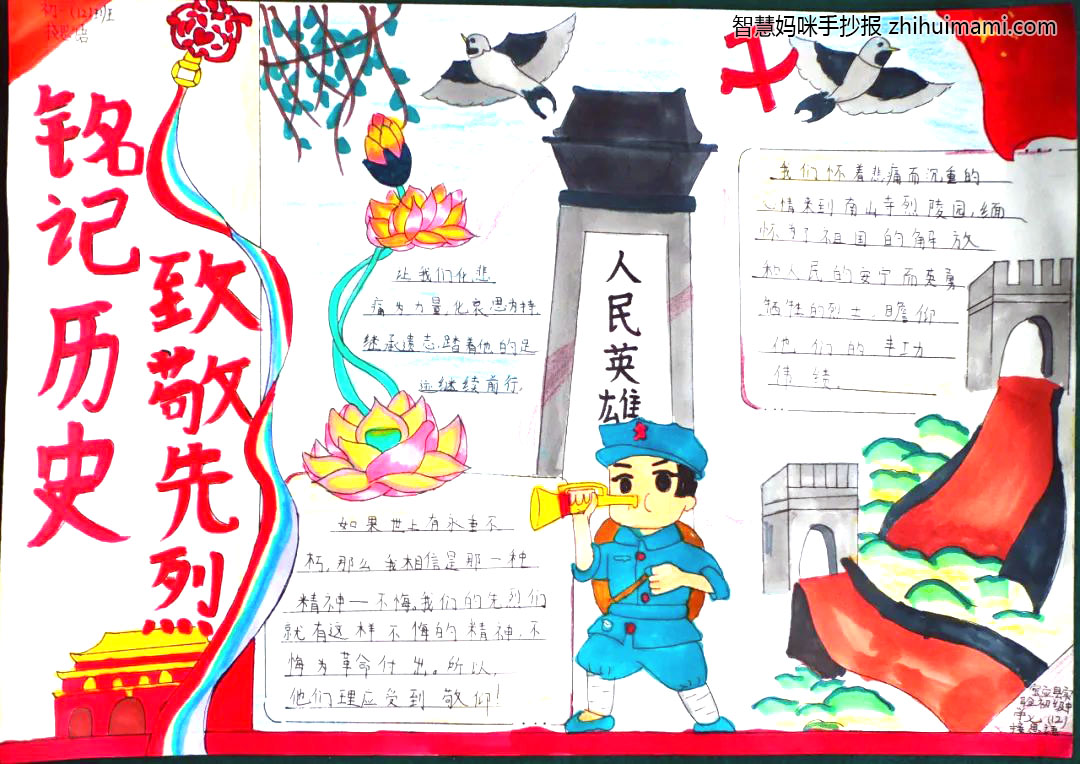 智慧妈咪手抄报 zhihuimami.com
初一(12)班
铭记历史
致敬先烈
人民英雄
让我们化悲
痛为力量化哀思为持,
继承遗志,踏着他的足
迹继续前行.
我们怀着悲痛而沉重的
心情来到南山寺烈陵园,缅
怀为了祖国的解放
和人民的安宁而英勇
牺牲的烈士,瞻仰
他们的丰功
伟绩.
如果世上有永垂不
朽,那么我相信是那一种
精神一不悔,我们的先烈们
就有这样不悔的精神,不
悔为革命付出。所以,
他们理应受到敬仰!
宝应县实
验初级中
学
(12)